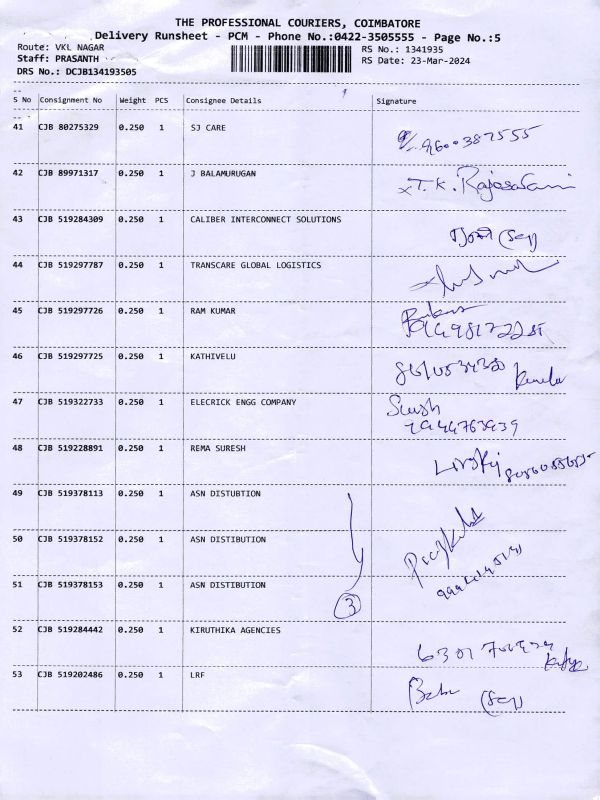 THE PROFESSIONAL COURIERS, COIMBATORE
Delivery Runsheet - PCM - Phone No.:0422-3505555 - Page No.:5
Route: VKL NAGAR
RS No.: 1341935
Staff: PRASANTH
RS Date: 23-Mar-2024
DRS No.: DCJB134193505
S No Consignment No Weight PCS Consignee Details Signature
41 CJB 80275329 0.250 1 SJ CARE 9600387555
42 CJB 89971317 0.250 1 J BALAMURUGAN T.K. Rajasalani
43 CJB 519284309 0.250 1 CALIBER INTERCONNECT SOLUTIONS
44 CJB 519297787 0.250 1 TRANSCARE GLOBAL LOGISTICS
45 CJB 519297726 0.250 1 RAM KUMAR
46 CJB 519297725 0.250 1 KATHIVELU
47 CJB 519322733 0.250 1 ELECRICK ENGG COMPANY
48 CJB 519228891 0.250 1 REMA SURESH
49 CJB 519378113 0.250 1 ASN DISTUBTION
50 CJB 519378152 0.250 1 ASN DISTIBUTION
51 CJB 519378153 0.250 1 ASN DISTIBUTION
3
52 CJB 519284442 0.250 1 KIRUTHIKA AGENCIES
53 CJB 519202486 0.250 1 LRF